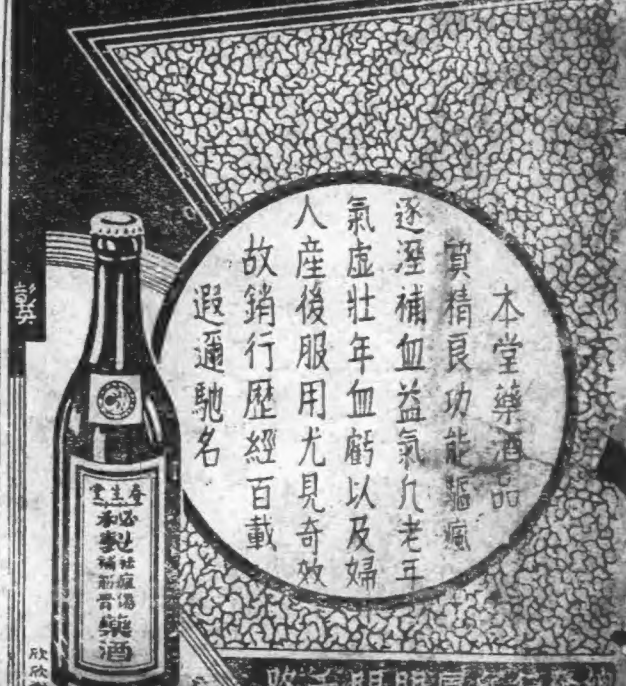 本堂藥酒品
質精良功能驅瘋
逐溼補血益氣凢老年
氣虛壯年血虧以及婦
人產後服用尤見奇效
故銷行歷經百載
遐邇馳名
春生堂
祛瘋濕
補筋骨
藥酒
欣欣